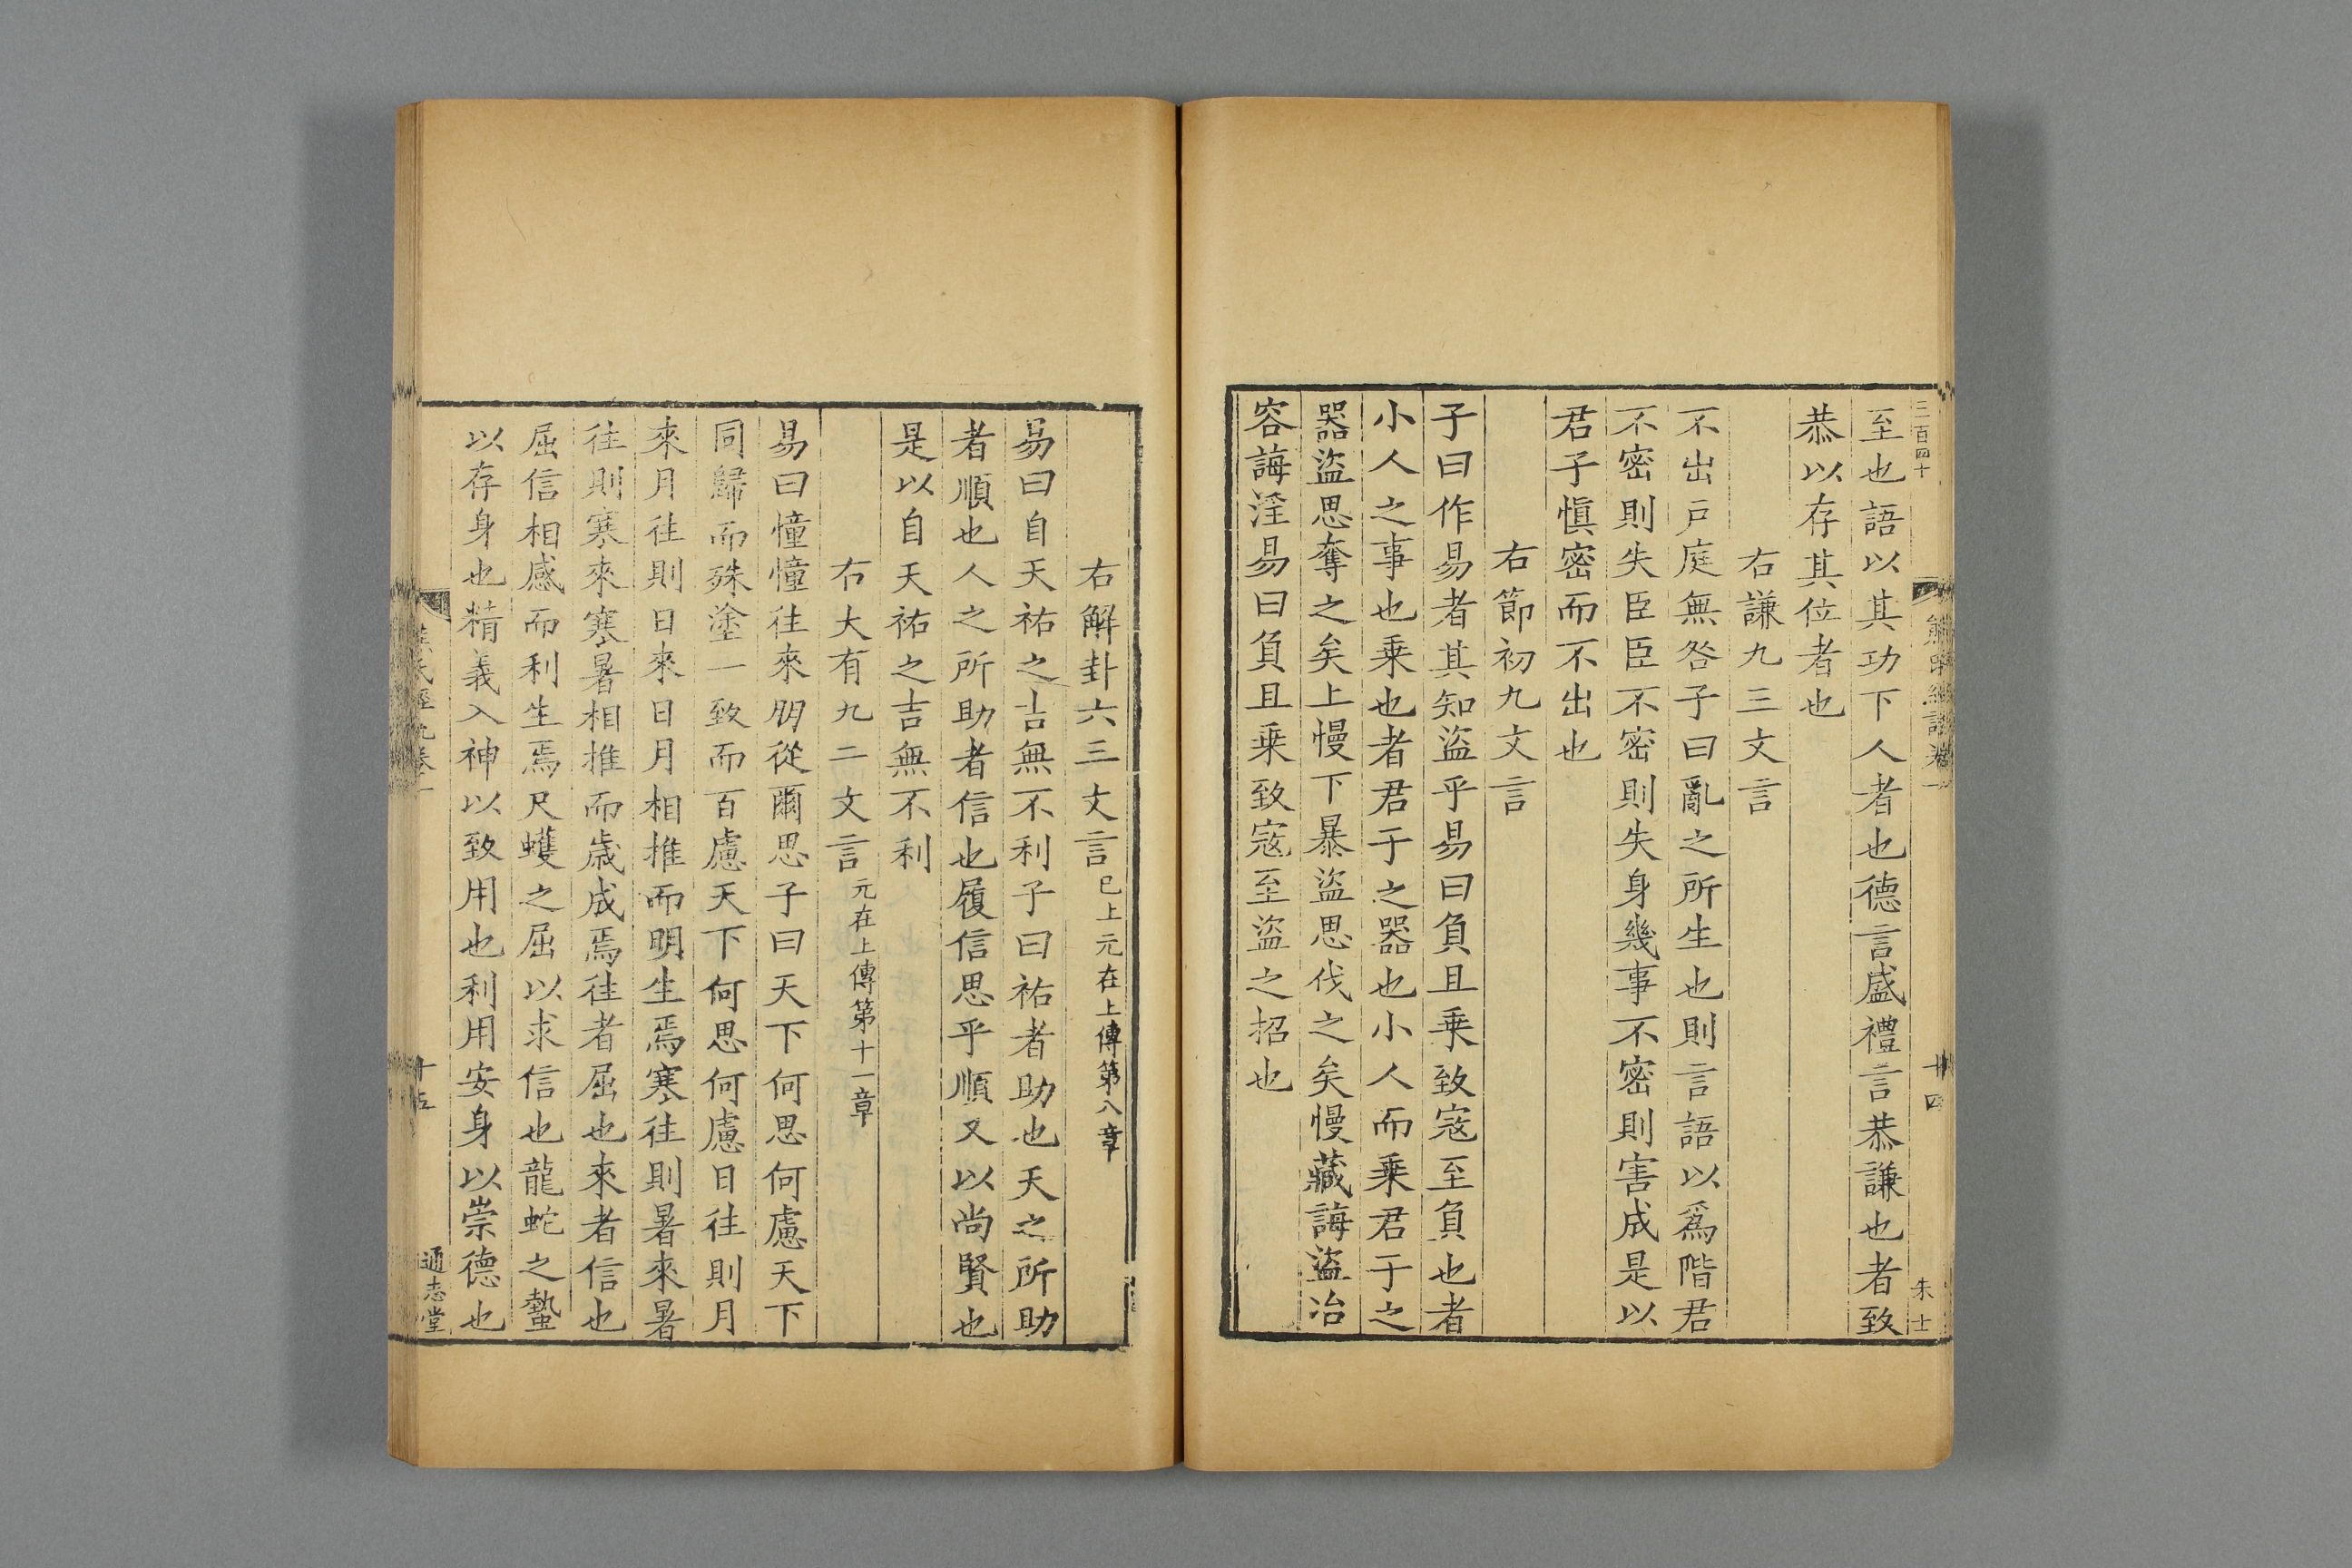 三百四十
朱士
至也語以其功下人者也德言盛禮言恭謙也者致
恭以存其位者也
右謙九三文言
不出戸庭無咎子曰亂之所生也則言語以爲階君
不密則失臣臣不密則失身幾事不密則害成是以
君子愼密而不出也
右節初九文言
子曰作易者其知盜乎易曰負且乗致寇至負也者
小人之事也乗也者君子之器也小人而乗君子之
器盜思奪之矣上慢下暴盜思伐之矣慢藏誨盜冶
容誨淫易曰負且乗致寇至盜之招也
右解卦六三文言已上元在上傳第八章
易曰自天祐之吉無不利子曰祐者助也天之所助
者順也人之所助者信也履信思乎順又以尚賢也
是以自天祐之吉無不利
右大有九二文言元在上傳第十一章
易曰憧憧往來朋從爾思子曰天下何思何慮天下
同歸而殊塗一致而百慮天下何思何慮日往則月
來月往則日來日月相推而明生焉寒往則暑來暑
往則寒來寒暑相推而歳成焉往者屈也來者信也
屈信相感而利生焉尺蠖之屈以求信也龍蛇之蟄
以存身也精義入神以致用也利用安身以崇德也
通志堂